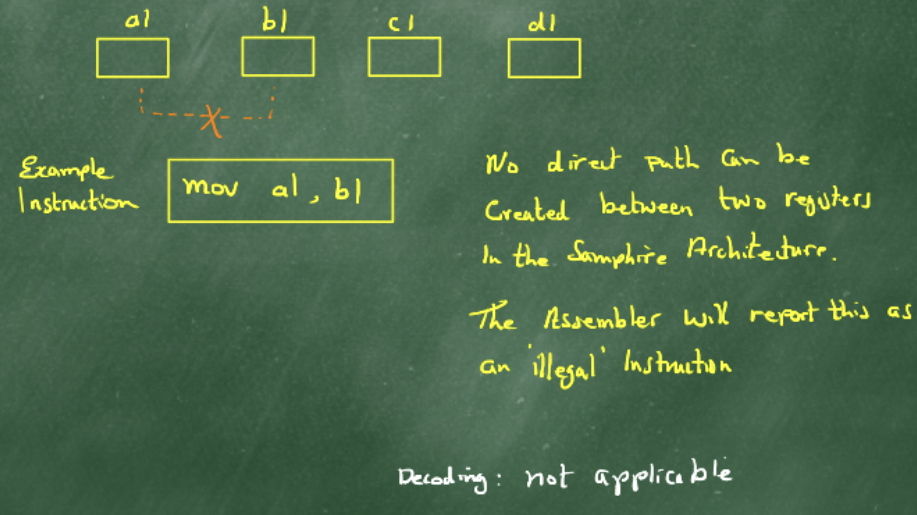 al bl cl dl
Example
Instruction
mov al, bl
No direct path can be
Created between two registers
In the Samphire Architecture.
The Assembler will report this as
an 'illegal' Instruction
Decoding: not applicable